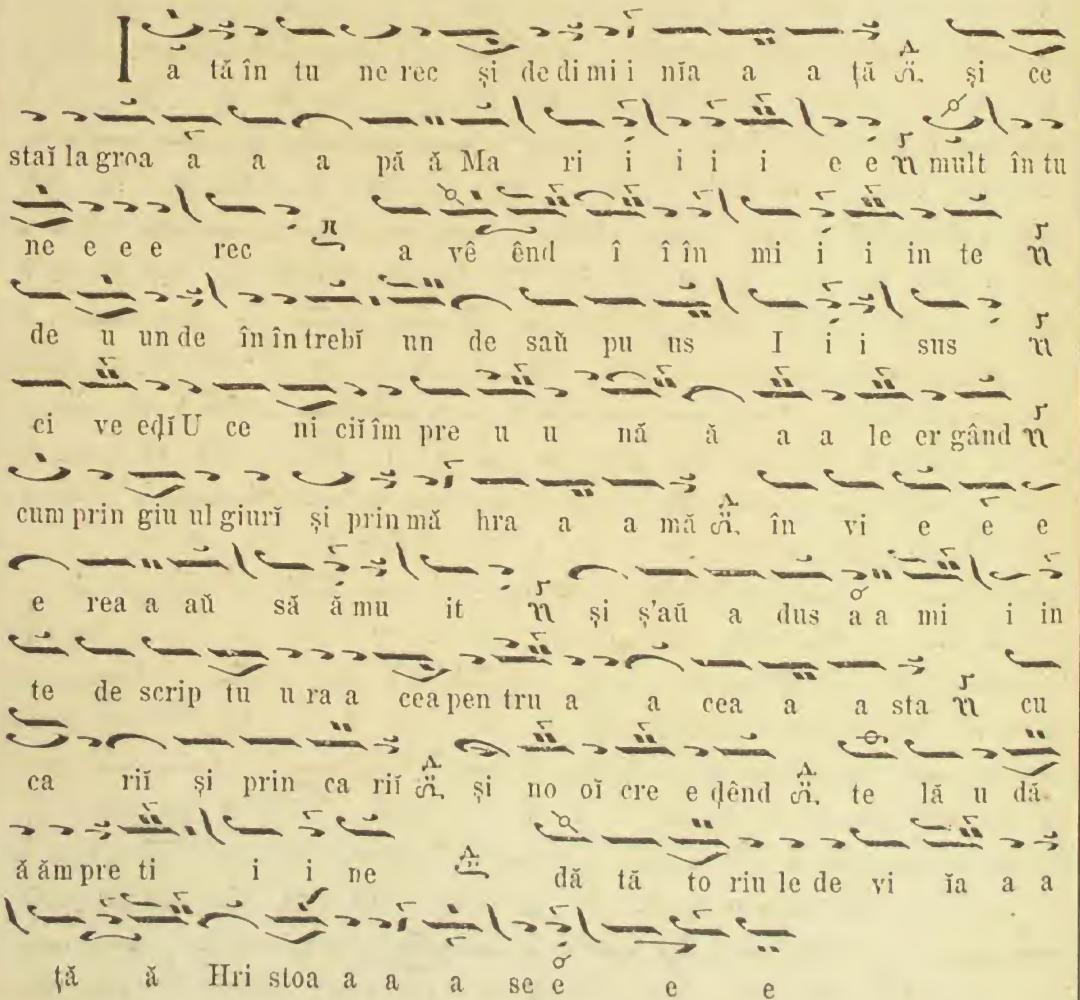 Ia tă în tu ne rec și de di mi i nĭa a a ță și ce
staĭ la groa a a a pă ă Ma ri i i i i e e mult în tu
ne e e e rec a vê ênd î î în mi i i in te
de u un de în în trebĭ un de saŭ pu us I i i sus
ci ve edĭ U ce ni ciĭ îm pre u u nă ă a a le er gând
cum prin giu ul giurĭ și prin mă hra a a mă în vi e e e
e rea a aŭ să ă mu it și ș'aŭ a dus a a mi i in
te de scrip tu u ra a cea pen tru a a cea a a sta cu
ca riĭ și prin ca riĭ și no oĭ cre e dênd te lă u dă
ă ăm pre ti i i ne dă tă to riu le de vi ĭa a a
ță ă Hri stoa a a a se e e e